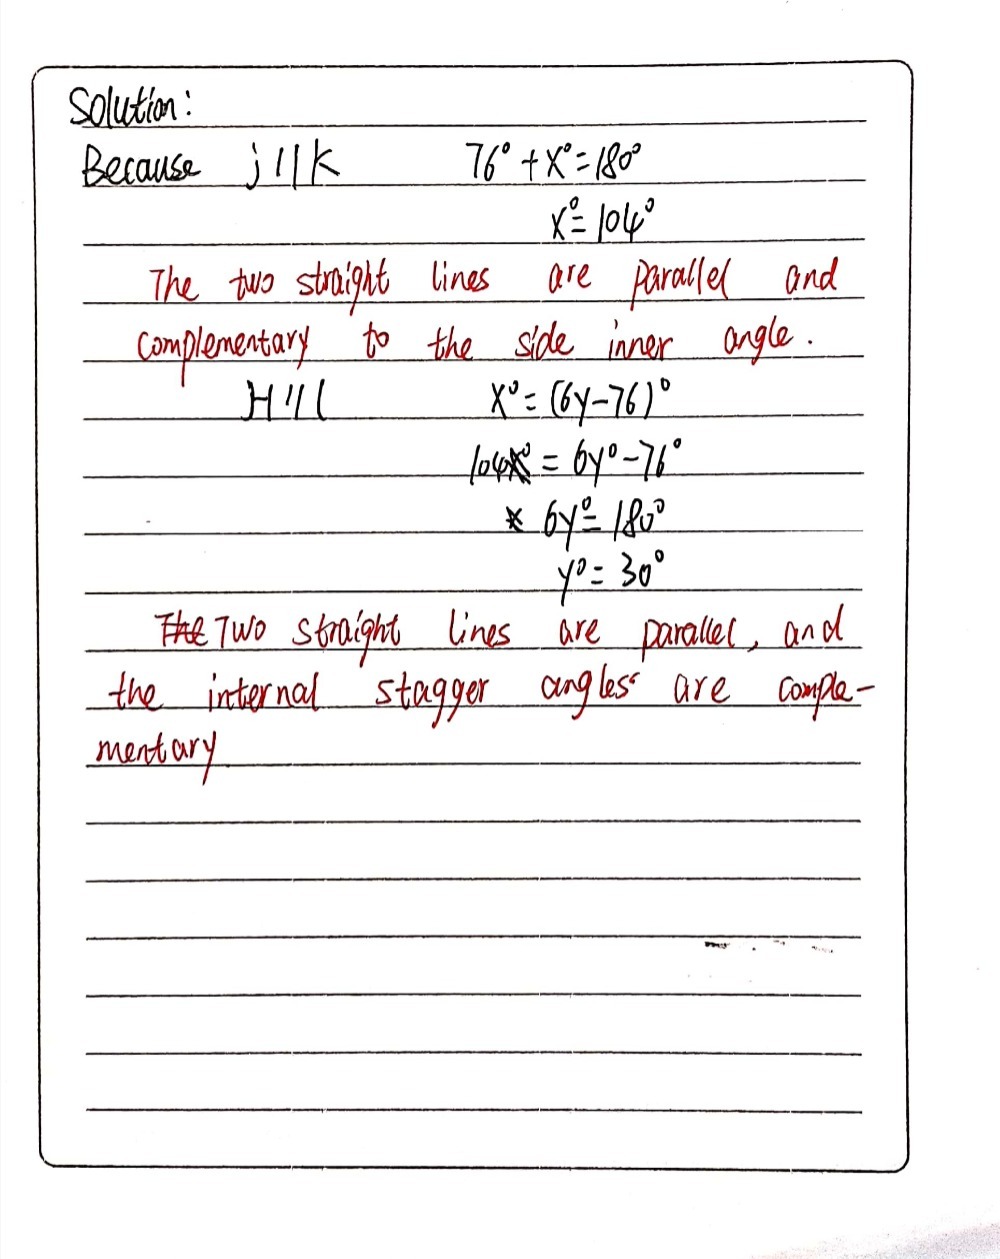 Solution:
Because j || k 76° + x° = 180°
x° = 104°
The two straight lines are parallel and
complementary to the side inner angle.
H || l x° = (6y-76)°
104° = 6y° - 76°
6y° = 180°
y° = 30°
The Two straight lines are parallel, and
the internal stagger angles are comple-
mentary